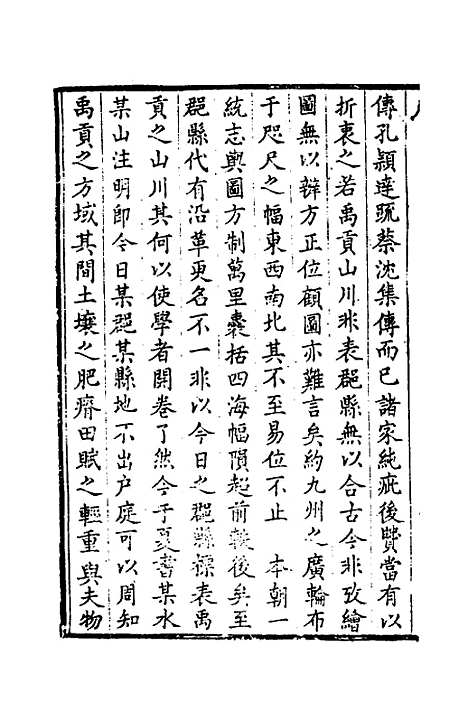 傳孔穎達疏蔡沈集傳而已諸家純疵後賢當有以
折衷之若禹貢山川非表郡縣無以合古今非攷繪
圖無以辨方正位顧圖亦難言矣約九州之廣輪布
于咫尺之幅東西南北其不至易位不止　本朝一
統志輿圖方制萬里囊括四海幅隕超前軼後矣至
郡縣代有沿革更名不一非以今日之郡縣標表禹
貢之山川其何以使學者開卷了然今于夏書某水
某山注明即今日某郡某縣地不出户庭可以周知
禹貢之方域其間土壤之肥瘠田賦之輕重與夫物